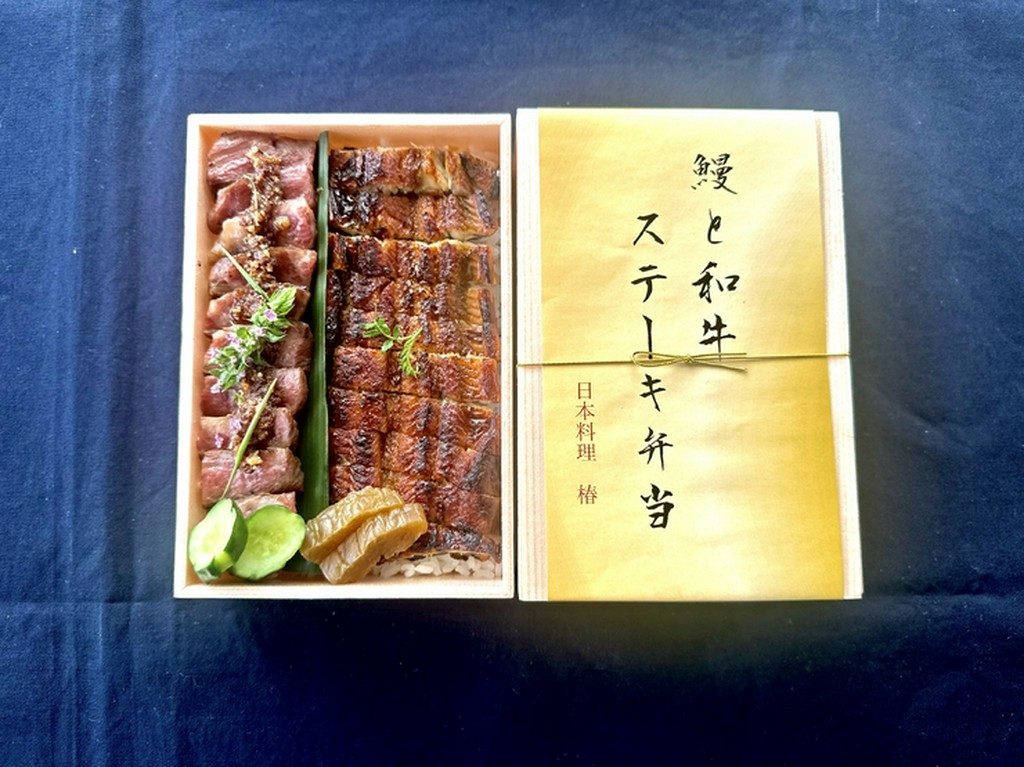 鰻と和牛
ステーキ弁当
日本料理 椿